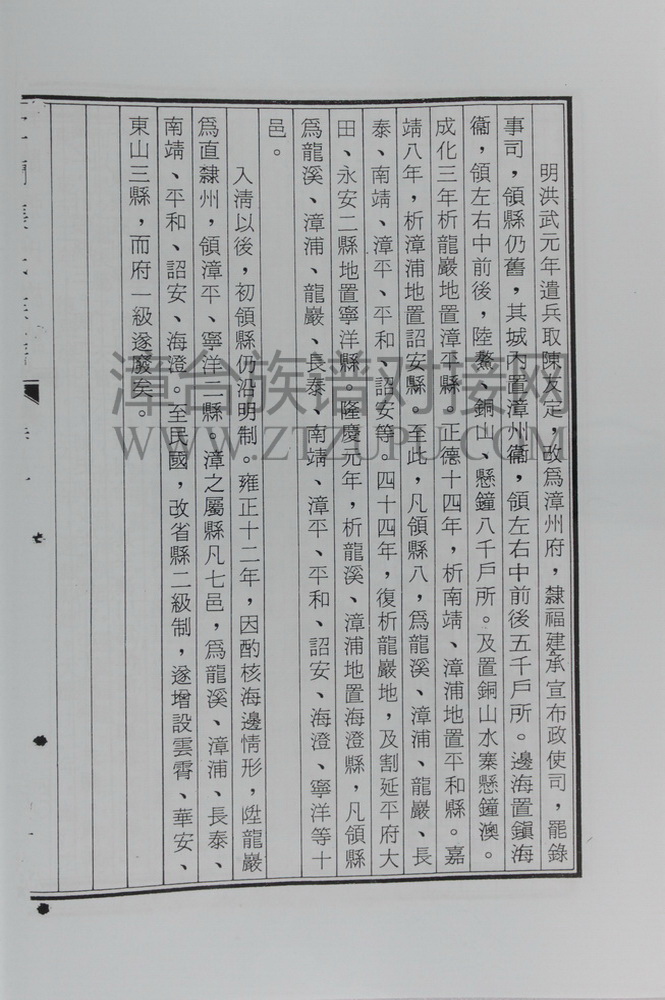 明洪武元年遣兵取陳友定，改爲漳州府，隸福建承宣布政使司，罷錄
事司，領縣仍舊，其城內置漳州衞，領左右中前後五千戶所。邊海置鎭海
衞，領左右中前後，陸鰲、銅山、懸鐘八千戶所。及置銅山水寨懸鐘澳。
成化三年析龍巖地置漳平縣。正德十四年，析南靖、漳浦地置平和縣。嘉
靖八年，析漳浦地置詔安縣。至此，凡領縣八，爲龍溪、漳浦、龍巖、長
泰、南靖、漳平、平和、詔安等。四十四年，復析龍巖地，及割延平府大
田、永安二縣地置寧洋縣。隆慶元年，析龍溪、漳浦地置海澄縣，凡領縣
爲龍溪、漳浦、龍巖、長泰、南靖、漳平、平和、詔安、海澄、寧洋等十
邑。
入淸以後，初領縣仍沿明制。雍正十二年，因酌核海邊情形，陞龍巖
爲直隸州，領漳平、寧洋二縣。漳之屬縣凡七邑，爲龍溪、漳浦、長泰、
南靖、平和、詔安、海澄。至民國，改省縣二級制，遂增設雲霄、華安、
東山三縣，而府一級遂廢矣。
漳台族谱对接网
WWW.ZTZUPU.COM